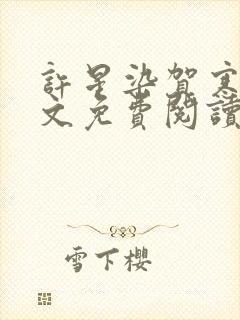 許星染賀
文免費閱讀
雪下櫻